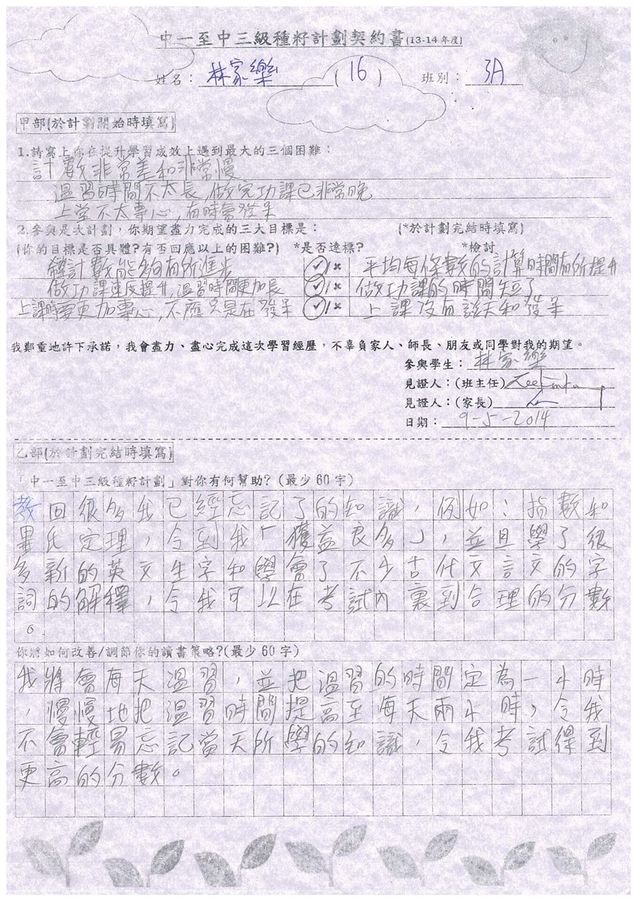 中一至中三級種籽計劃契約書(13-14年度)
姓名: 林家樂 (16) 班別: 3A
甲部(於計劃開始時填寫)
1.請寫上你在提升學習成效上遇到最大的三個困難:
計數非常差和非常慢
溫習時間不太長,做完功課已非常晚
上堂不太專心,有時會發呆
2.參與是次計劃,你期望盡力完成的三大目標是: (*於計劃完結時填寫)
(你的目標是否具體?有否回應以上的困難?) *是否達標? *檢討
計數能夠有所進步 ✓/× 平均每條數的計算時間有所提升
做功課速度提升,溫習時間更加長 ✓/× 做功課的時間短了
上課時需更加專心,不應只是在發呆 ✓/× 上課沒有談天和發呆
我鄭重地許下承諾,我會盡力、盡心完成這次學習經歷,不辜負家人、師長、朋友或同學對我的期望。
參與學生: 林家樂
見證人:(班主任)
見證人:(家長)
日期: 9-5-2014
乙部(於計劃完結時填寫)
「中一至中三級種籽計劃」對你有何幫助?(最少60字)
教回很多我已經忘記了的知識,例如:指數和
畢氏定理,令到我「獲益良多」,並且學了很
多新的英文生字和學會了不少古代文言文的字
詞的解釋,令我可以在考試內裏到合理的分數
。
你將如何改善/調節你的讀書策略?(最少60字)
我將會每天溫習,並把溫習的時間定為一小時
,慢慢地把溫習時間提高至每天兩小時,令我
不會輕易忘記當天所學的知識,令我考試得到
更高的分數。